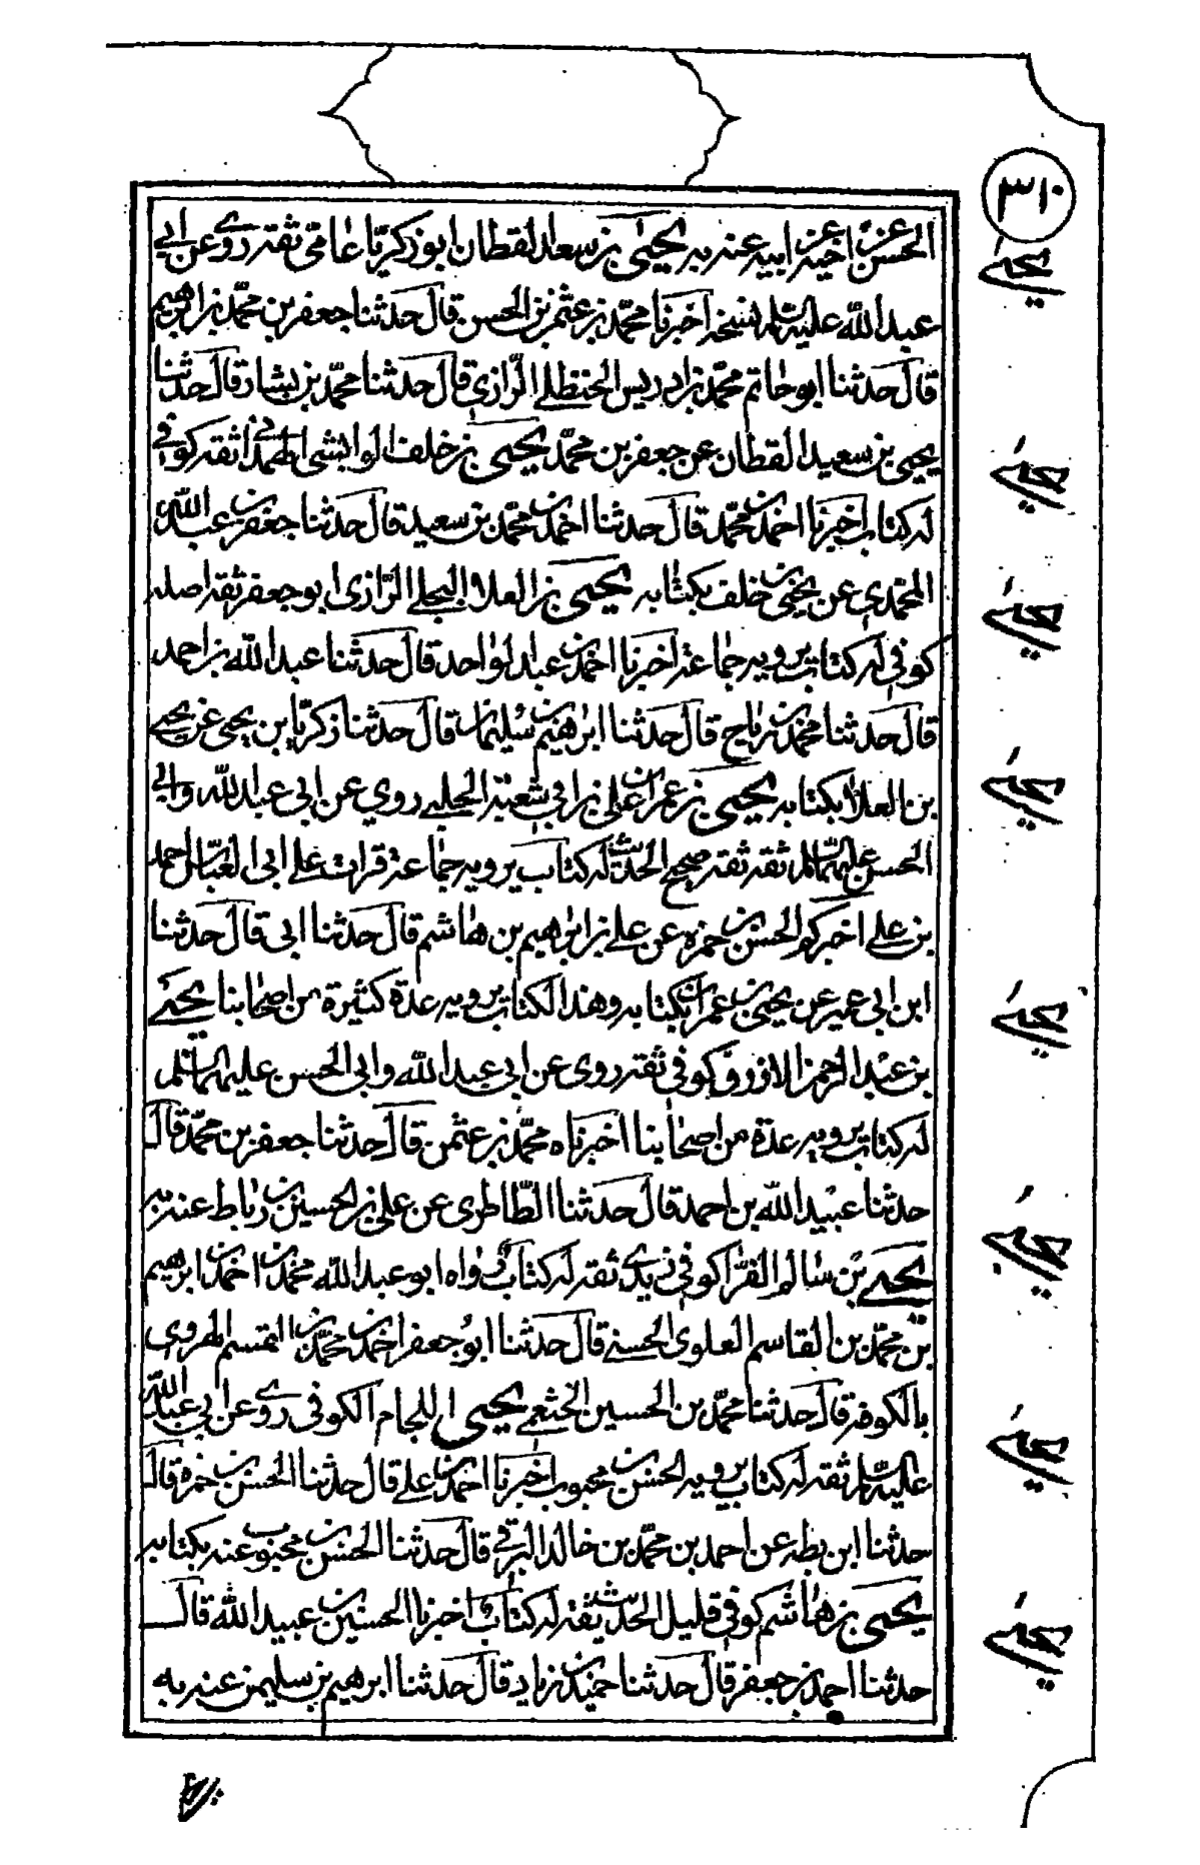 ٣١٠
الحسن عن اخيه عن ابيه عنه به يحيى بن سعيد القطان ابو زكريا عامى ثقة روى عن ابى
عبد الله عليه السلم نسخة اخبرنا محمد بن عثمن بن الحسن قال حدثنا جعفر بن محمد بن ابرهيم
قال حدثنا ابو حاتم محمد بن ادريس الحنظلى الرازى قال حدثنا محمد بن بشار قال حدثنا
يحيى بن سعيد القطان عن جعفر بن محمد يحيى بن خلف الوابشى الهمدانى ثقة كوفى
له كتاب اخبرنا احمد بن محمد قال حدثنا احمد بن محمد بن سعيد قال حدثنا جعفر بن عبد الله
المحمدى عن يحيى بن خلف بكتابه يحيى بن العلاء البجلى الرازى ابو جعفر ثقة اصله
كوفى له كتاب يرويه جماعة اخبرنا احمد بن عبد الواحد قال حدثنا عبد الله بن احمد
قال حدثنا محمد بن رباح قال حدثنا ابرهيم بن سليمان قال حدثنا زكريا بن يحيى عن يحيى
بن العلاء بكتابه يحيى بن عمران بن على بن ابى شعبة الحلبى روى عن ابى عبد الله وابى
الحسن عليهما السلم ثقة ثقة صحيح الحديث له كتاب يرويه جماعة قرات على ابى العباس احمد
بن على اخبركم الحسن بن حمزه عن على بن ابرهيم بن هاشم قال حدثنا ابى قال حدثنا
ابن ابى عمير عن يحيى بن عمران بكتابه وهذا الكتاب يرويه عدة كثيرة من اصحابنا يحيى
بن عبد الرحمن الازرق كوفى ثقة روى عن ابى عبد الله وابى الحسن عليهما السلم
له كتاب يرويه عدة من اصحابنا اخبرناه محمد بن عثمن قال حدثنا جعفر بن محمد قال
حدثنا عبيد الله بن احمد قال حدثنا الطاطرى عن على بن الحسين بن رباط عنه به
يحيى بن سالم الفرا كوفى زيدى ثقة له كتاب رواه ابو عبد الله محمد بن احمد بن ابرهيم
بن محمد بن القاسم العلوى الحسنى قال حدثنا ابو جعفر احمد بن محمد بن القسم الهروى
بالكوفة قال حدثنا محمد بن الحسين الخثعمى يحيى اللجام الكوفى روى عن ابى عبد الله
عليه السلم ثقة له كتاب يرويه الحسن بن محبوب اخبرنا احمد بن على قال حدثنا الحسن بن حمزه قال
حدثنا ابن بطه عن احمد بن محمد بن خالد البرقى قال حدثنا الحسن بن محبوب عنه بكتابه
يحيى بن هاشم كوفى قليل الحديث ثقة له كتاب اخبرنا الحسين بن عبيد الله قال
حدثنا احمد بن جعفر قال حدثنا حميد بن زياد قال حدثنا ابرهيم بن سليمن عنه به
يحيى
يحيى
يحيى
يحيى
يحيى
يحيى
يحيى
يحيى